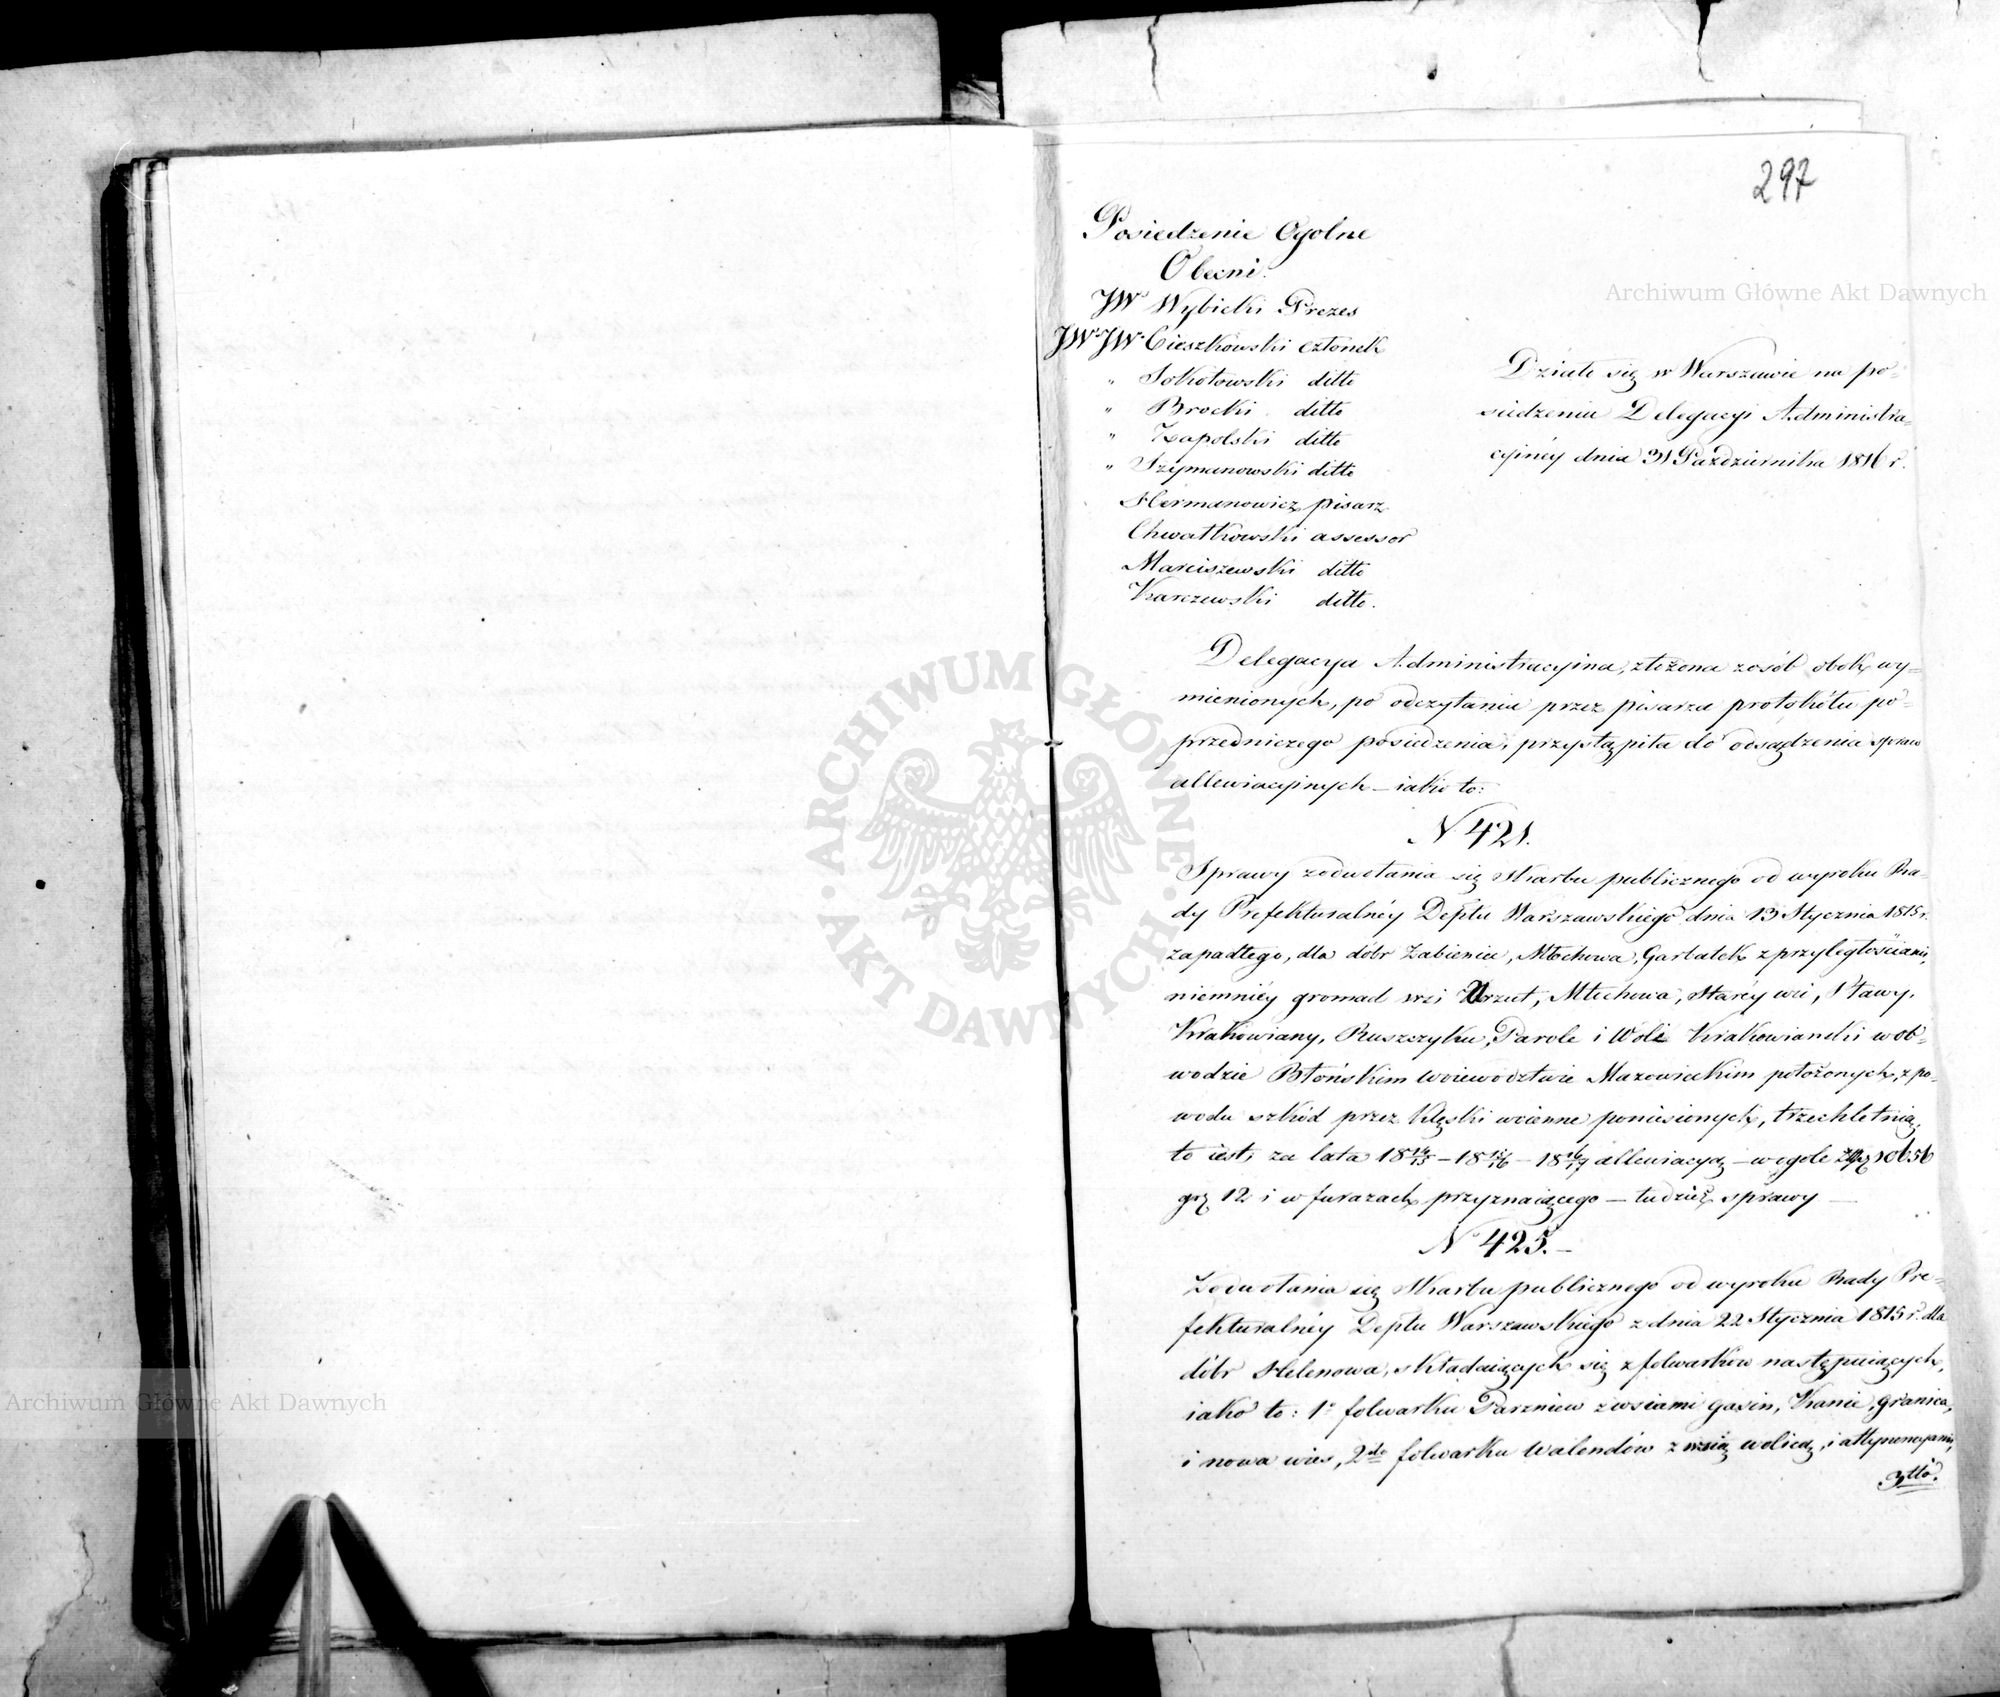 297
Posiedzenie Ogolne
Obecni.
JW Wybicki Prezes
JW JW Cieszkowski członek
" Sokołowski ditto
" Brocki ditto
" Zapolski ditto
" Szymanowski ditto
Hermanowicz pisarz
Chwałkowski assessor
Marciszewski ditto
Karczewski ditto.
Działo się w Warszawie na po-
siedzeniu Delegacyi Administra-
cyinéy dnia 31 Października 1816 r.
Delegacya Administracyina, złożona z osób obok wy-
mienionych, po odczytaniu przez pisarza protokółu po-
przedniczego posiedzenia, przystąpiła do osądzenia spraw
allewiacyinych – iako to:
N 421.
Sprawy z odwołania się Skarbu publicznego od wyroku Ra-
dy Prefekturalnéy Deptu Warszawskiego dnia 13 Stycznia 1815 r.
zapadłego, dla dóbr Zabieniec, Młochowa, Garbatek z przyległościami,
niemniéy gromad wsi Urzut, Młochowa, Staréy wsi, Stawy,
Krakowiany, Ruszczyku, Parole i Woli Krakowianki w ob-
wodzie Błońskim Woiewodztwie Mazowieckim położonych, z po-
wodu szkód przez klęski woienne poniesionych, trzechletnią,
to iest, za lata 18 14/15 – 18 15/16 – 18 16/17 allewiacyą – wogole złp 10656
gr 12 i w furazach przyznaiącego – tudzież sprawy –
N 425. –
Z odwołania się Skarbu publicznego od wyroku Rady Pre-
fekturalnéy Deptu Warszawskiego z dnia 22 Stycznia 1815 r. dla
dóbr Helenowa, składaiących się z folwarków następuiących,
iako to: 1o folwarku Parzniew z wsiami gąsin, Kanie, granica,
i nowa wies, 2do folwarku Walendów z wsią wolicą, i attynencyami,
3tio.
Archiwum Główne Akt Dawnych
Archiwum Główne Akt Dawnych
ARCHIWUM GŁÓWNE · AKT DAWNYCH ·